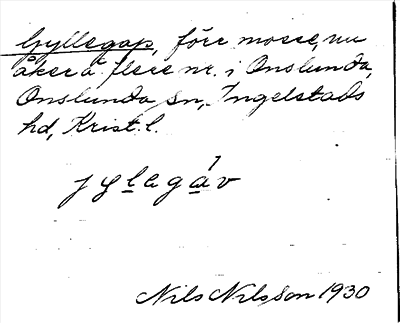 Gyllegap, förr mosse, nu
åker å flere nr. i Onslunda,
Onslunda Sn, Ingelstads
hd, Krist. l.
Nils Nilsson 1930